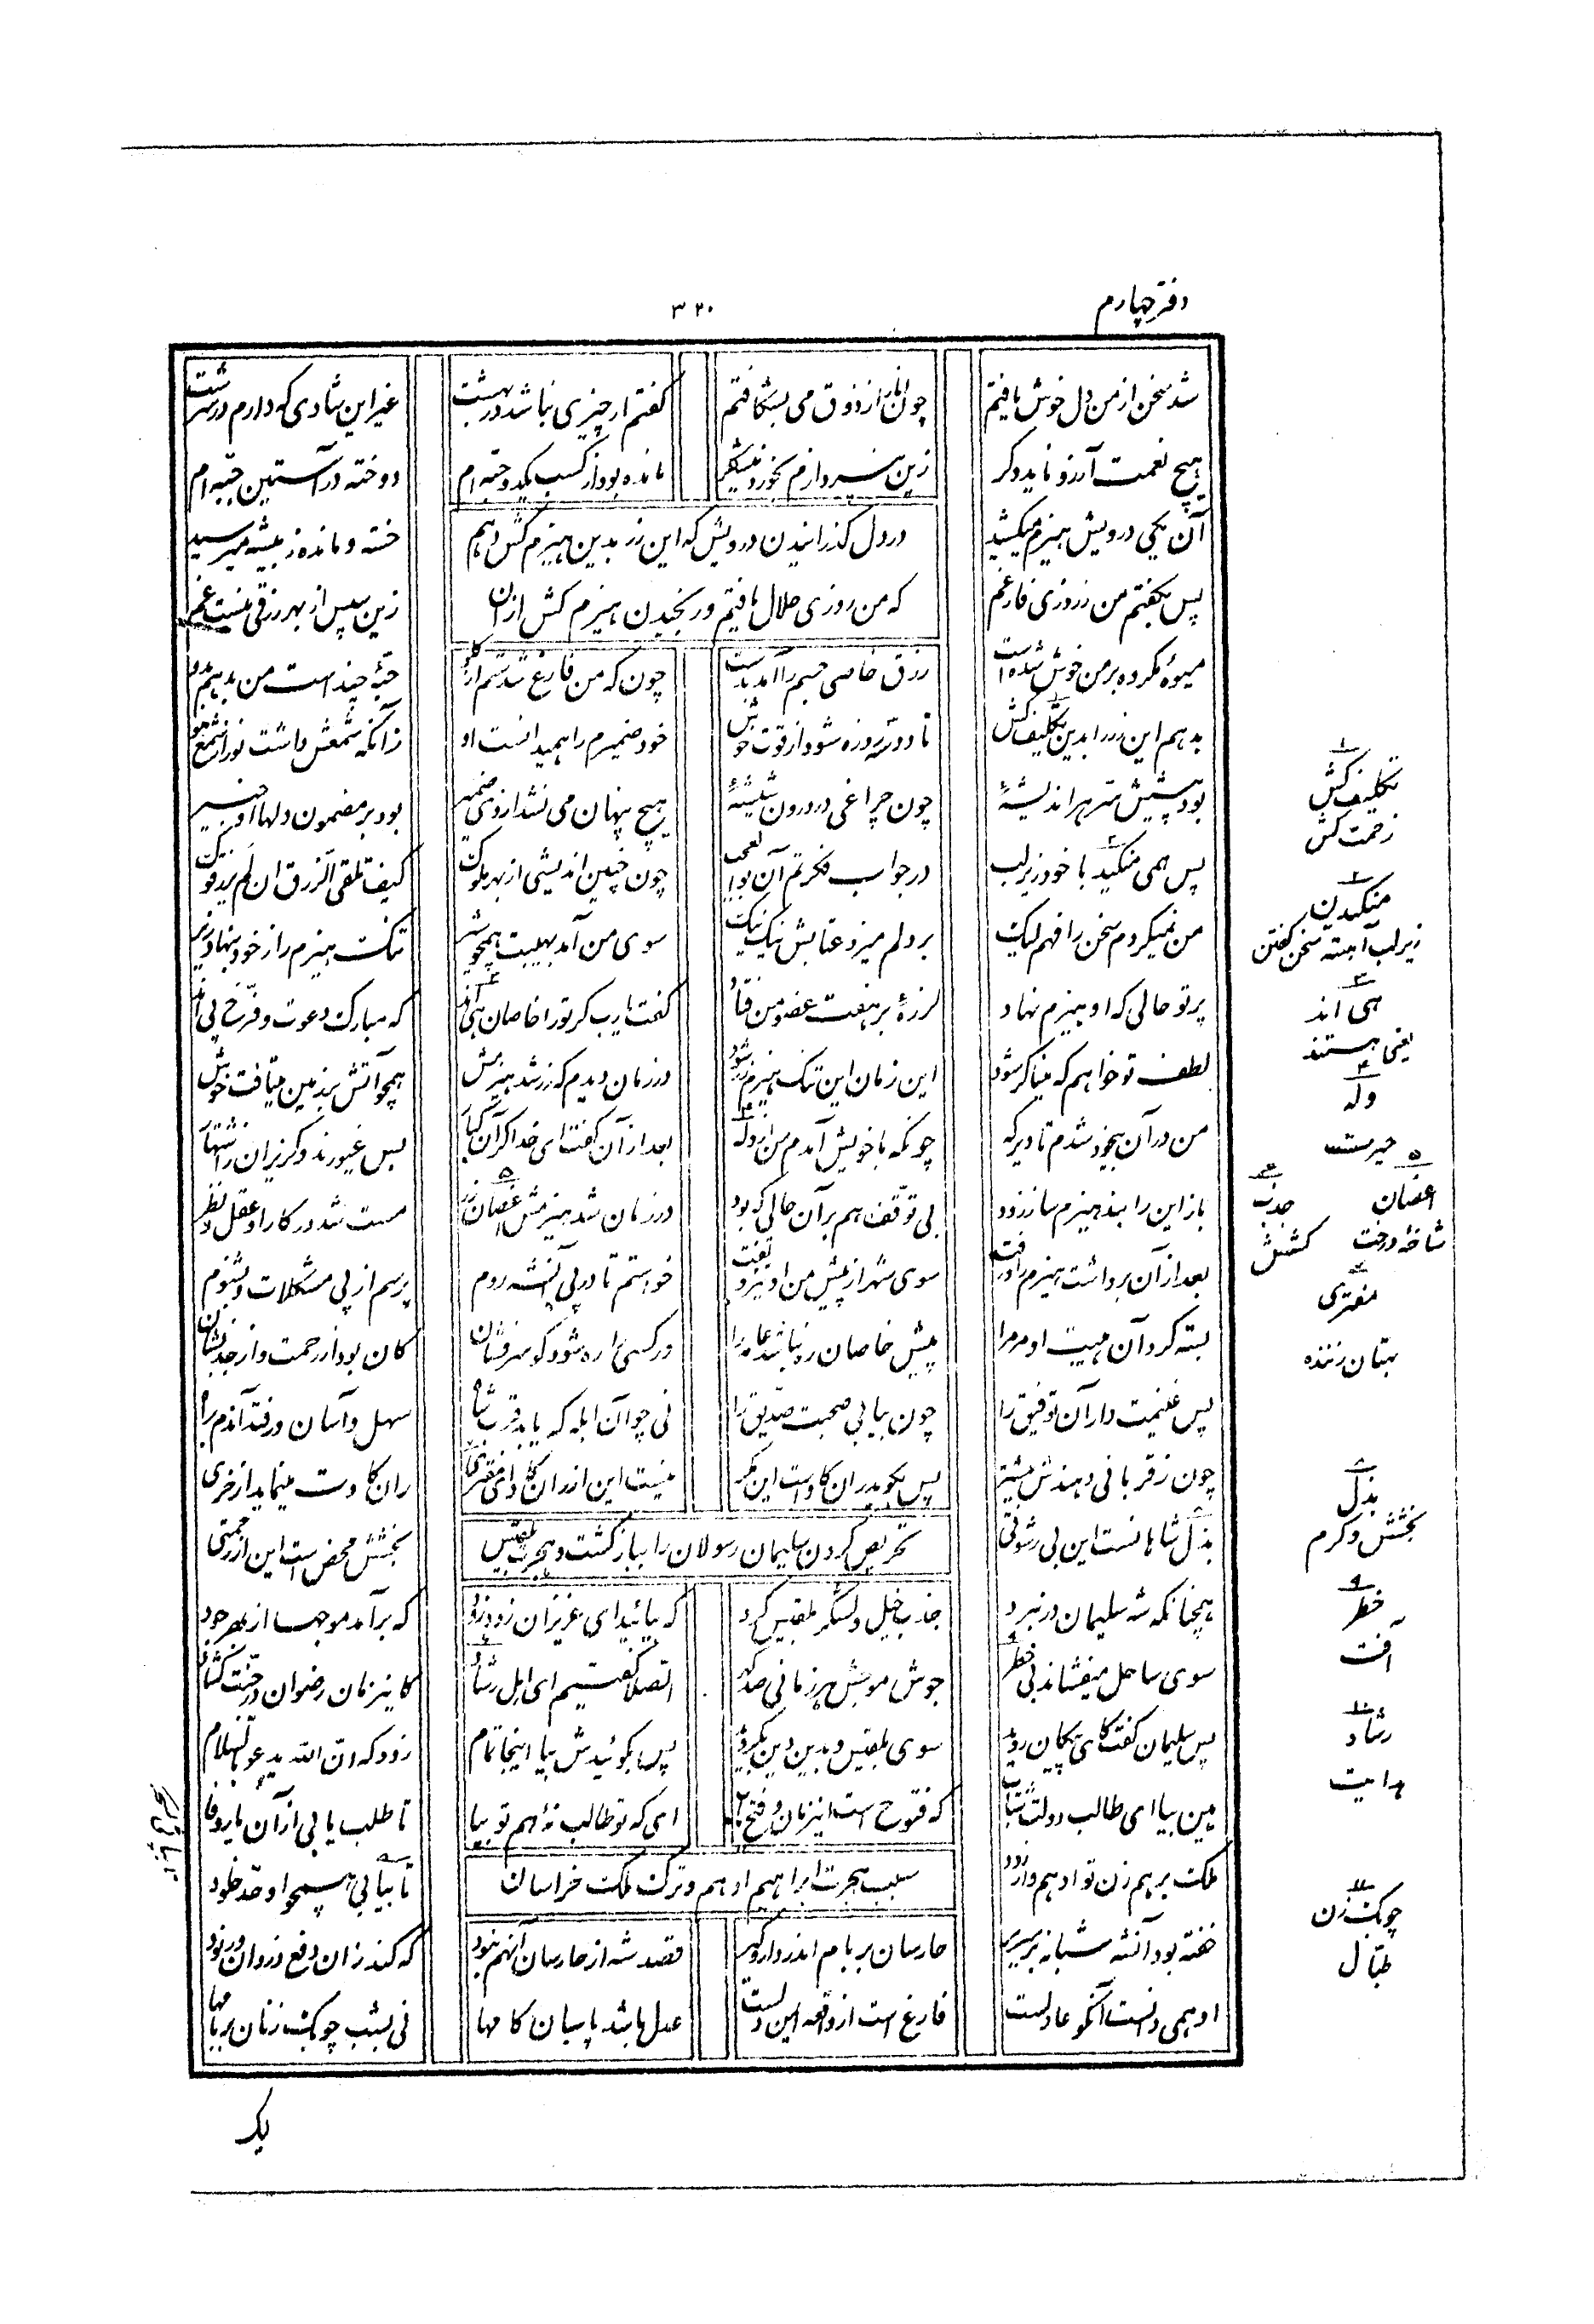 دفتر چهارم
۳۲۰
شد سخن از من دل خوش یافتم چون انار از ذوق می بشکافتم گفتم ار چیزی نباشد در بهشت غیر این شادی که دارم در سرشت
هیچ نعمت آرزو ناید دگر زین نپردازم بخور و نیشکر مانده بود از کسب یکدو حبّه‌ام دوخته در آستین جبّه‌ام
در دل گذرانیدن درویش که این زر بدین هیزم کش دهم
که من روزی حلال یافتم و رنجیدن هیزم کش از ان
آن یکی درویش هیزم میکشید خسته و مانده ز بیشه میرسید
پس بگفتم من ز روزی فارغم زین سپس از بهر رزقی نیست غم
میوهٔ مکروه بر من خوش شده است رزق خاصی جسم را آمد بدست چون که من فارغ شدستم از گلو حبّهٔ چند است من بدهم بدو
بدهم این زر را بدین تکلیف کش تا دو سه روزه شود از قوت خوش خود ضمیرم را همیدانست او زآنکه شمعش داشت نور از شمع هو
بود پیشش سر هر اندیشهٔ چون چراغی در درون شیشهٔ هیچ پنهان می نشد از وی ضمیر بود بر مضمون دلها او خبیر
پس همی منکید با خود زیر لب در جواب فکرتم آن بوالعجب چون چنین اندیشی از بهر ملوک کیف تلقی الرزق ان لم یرزقوک
من نمیکردم سخن را فهم لیک بر دلم میزد عتابش نیک نیک سوی من آمد بهیبت همچو شیر تنگ هیزم را ز خود بنهاد زیر
پرتو حالی که او هیزم نهاد لرزهٔ بر هفت عضو من فتاد گفت یارب گر تو را خاصان هی اند که مبارک دعوت و فرّخ پی اند
لطف تو خواهم که میناگر شود این زمان این تنگ هیزم زر شود در زمان دیدم که زر شد هیزمش همچو آتش بر زمین میتافت خوش
من در آن بیخود شدم تا دیرگه چونکه با خویش آمدم من از وله بعد از آن گفت ای خدا گر آن کبار بس غیورند و گریزان ز اشتهار
باز این را بند هیزم ساز زود بی توقّف هم بر آن حالی که بود در زمان شد هیزمش اغصان زر مست شد در کار او عقل و نظر
بعد از آن برداشت هیزم را و رفت سوی شهر از پیش من او تیز و تفت خواستم تا در پی آن شه روم پرسم از پی مشکلات و بشنوم
بسته کرد آن هیبت او مر مرا پیش خاصان ره نباشد عامه را ور کسی را ره شود گو سر فشان کان بود از رحمت و از جذبشان
پس غنیمت دار آن توفیق را چون بیابی صحبت صدّیق را نی چو آن ابله که یابد قرب شاه سهل و آسان در فتد آندم ز راه
چون ز قربانی دهندش بیشتر پس بگوید ران گاو است این مگر نیست این از ران گاو ای مفتری ران گاوت مینماید از خری
تحریص کردن سلیمان رسولان را بباز گشت و هجرت بلقیس
بذل شاهانست این بی رشوتی بخشش محض است این از رحمتی
همچنانکه شه سلیمان در نبرد جذب خیل و لشگر بلقیس کرد که بیائید ای عزیزان زود زود که برآمد موجها از بحر جود
سوی ساحل میفشاند بی خطر جوش موجش هر زمانی صد گهر الصلا گفتیم ای اهل رشاد کاینزمان رضوان در جنّت گشاد
پس سلیمان گفت کای پیکان روید سوی بلقیس و بدین دین بگروید پس بگوئیدش بیا اینجا تمام زود که انّ الله یدعو بالسلام
هین بیا ای طالب دولت شتاب که فتوح است اینزمان و فتح باب ای که تو طالب نهٔ هم تو بیا تا طلب یابی از آن یار وفا
سبب هجرت ابراهیم ادهم و ترک ملک خراسان
ملک بر هم زن تو ادهم وار زود تا بیابی همچو او ملک خلود
خفته بود آنشه شبانه بر سریر حارسان بر بام اندر دار و گیر قصد شه از حارسان آنهم نبود که کند زان دفع دزدان و رنود
او همی دانست آنکو عادلست فارغ است از واقعه ایمن دلست عدل باشد پاسبان کامها نی بشب چوبک زنان بر بامها
لیک
۱
تکلیف کش
زحمت کش
۲
منکیدن
زیر لب آهسته سخن گفتن
۳
هی اند
یعنی هستند
۴
وله
حیرت
۵
اغصان
شاخهٔ درخت
۶
جذب
کشش
۷
مفتری
بهتان زننده
۸
بذل
بخشش و کرم
۹
خطر
آفت
۱۰
رشاد
هدایت
۱۱
چوبک زن
طبّال